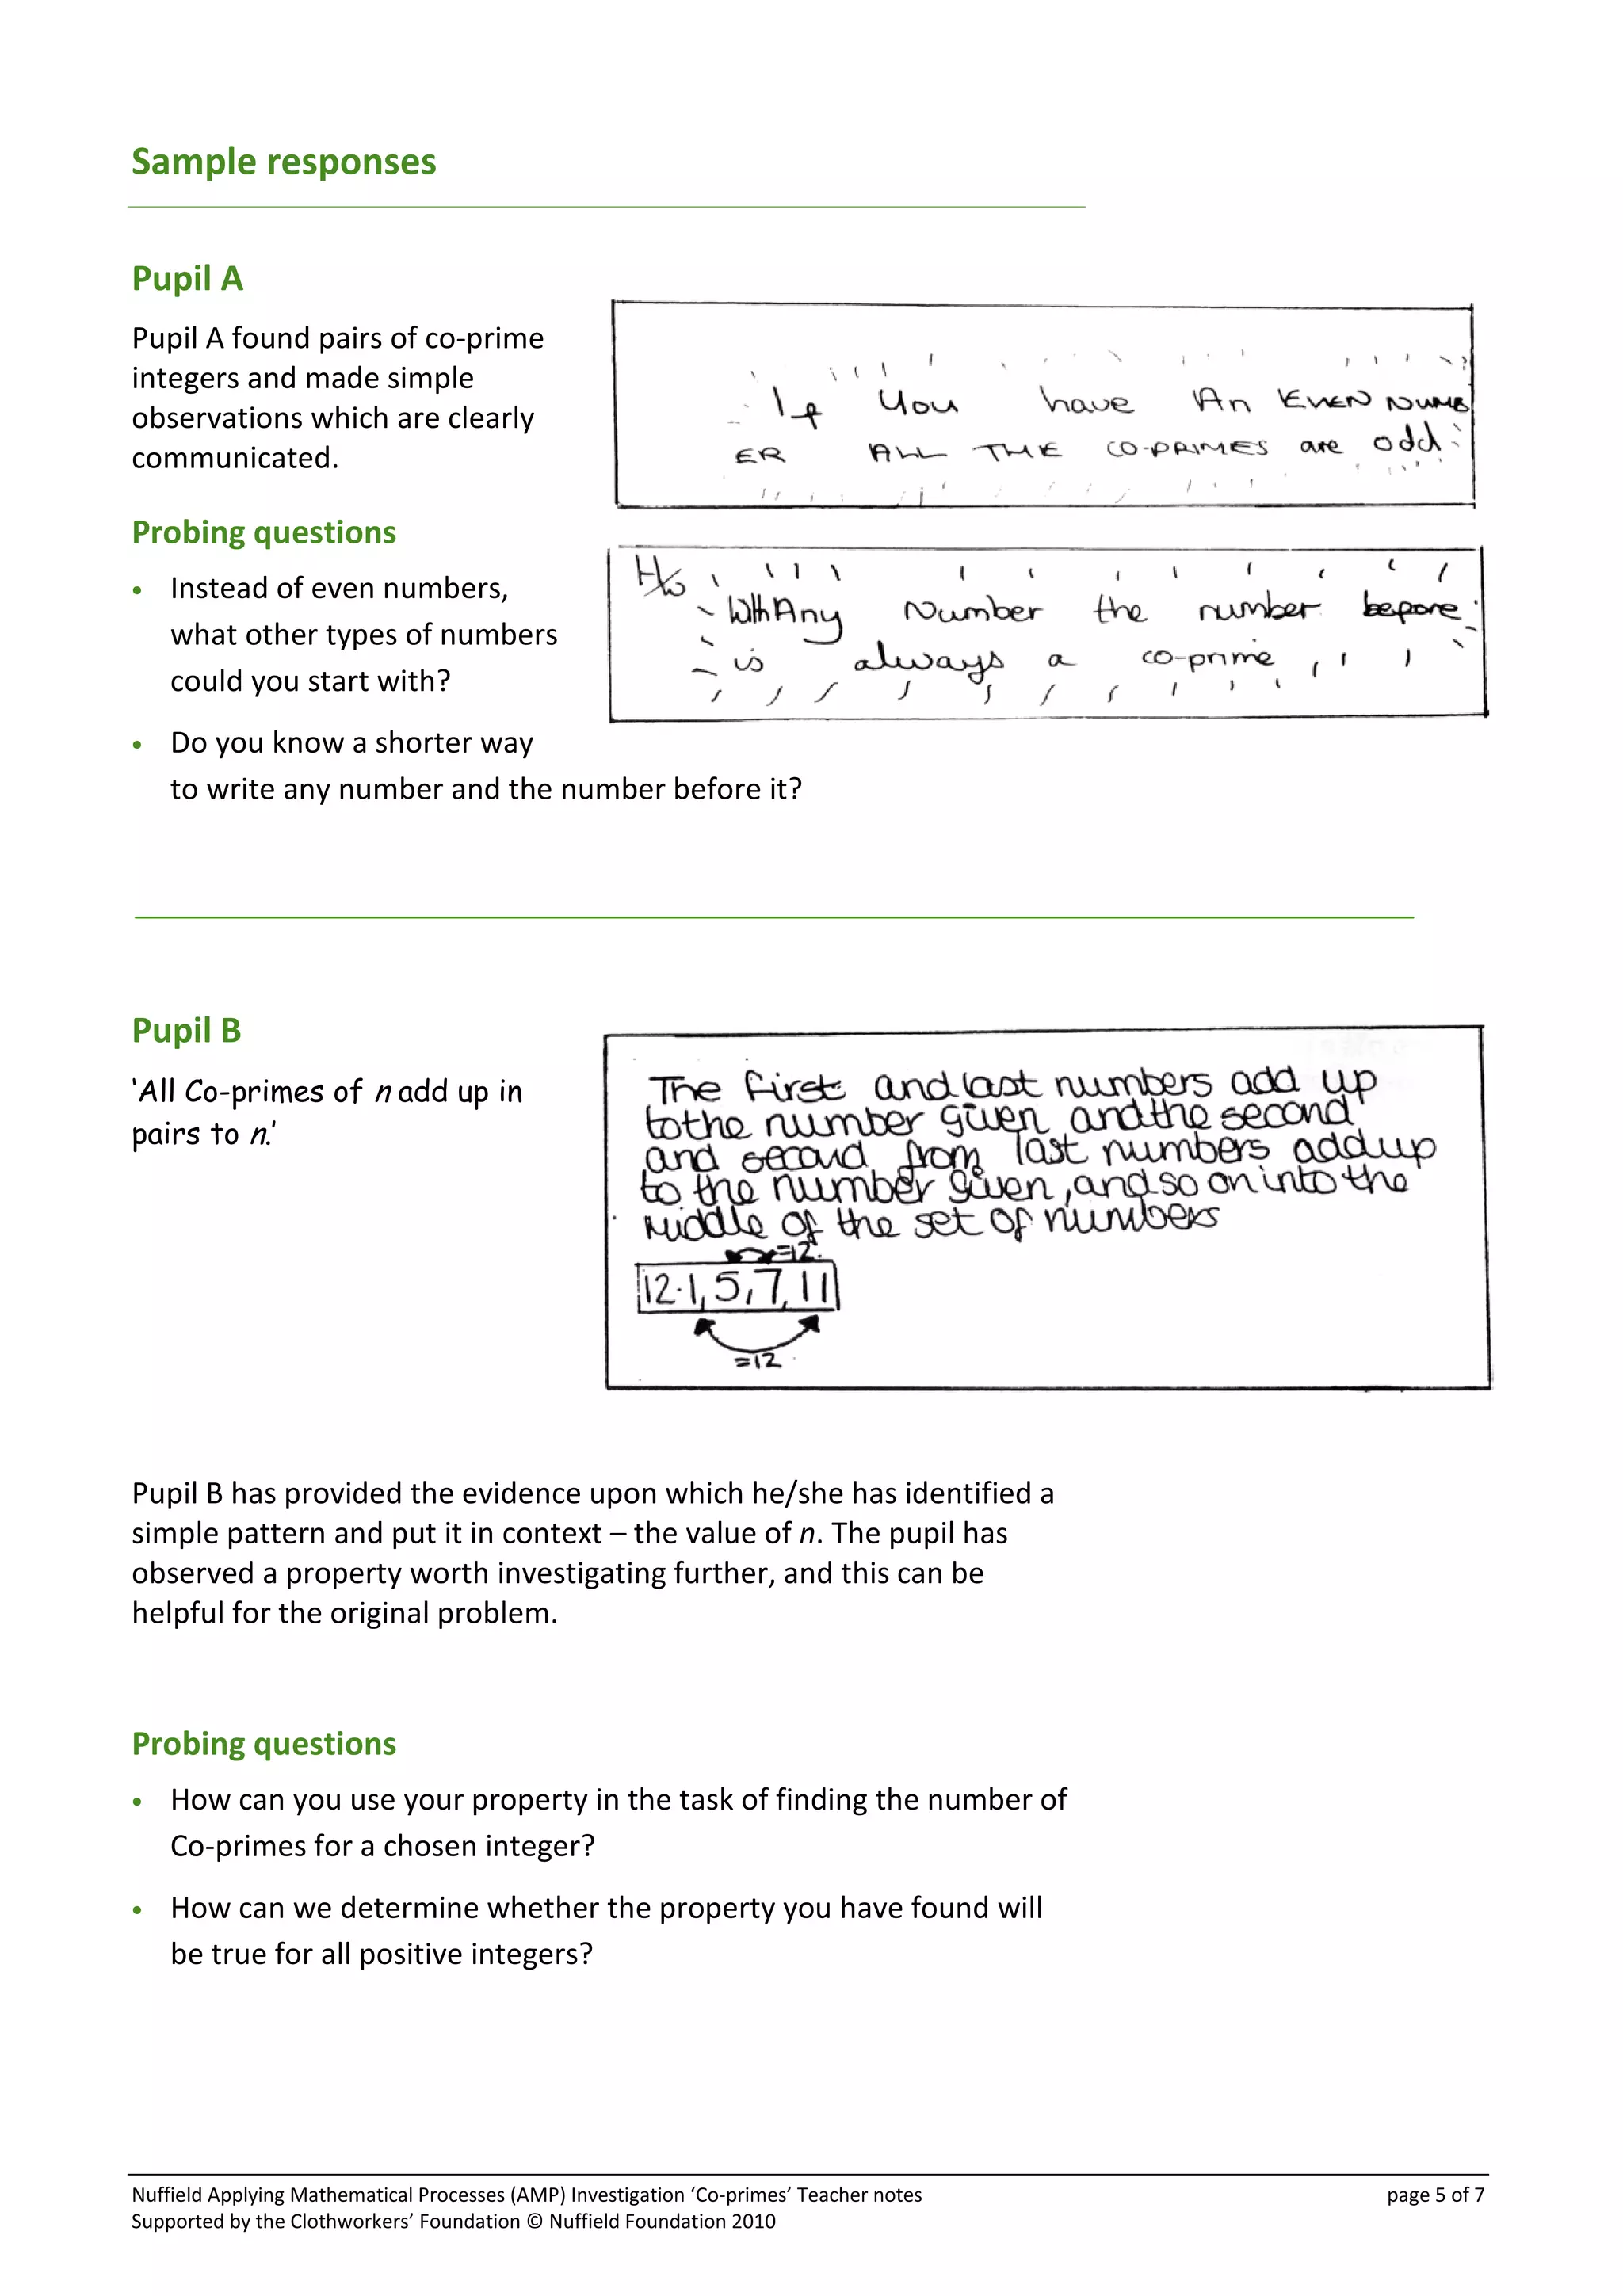 Sample responses
Pupil A
Pupil A found pairs of co-prime
integers and made simple
observations which are clearly
communicated.
If You have An EVEN NUMB
ER ALL THE CO-PRIMES are odd
Probing questions
• Instead of even numbers,
what other types of numbers
could you start with?
• Do you know a shorter way
to write any number and the number before it?
With Any Number the number before
is always a co-prime
Pupil B
‘All Co-primes of n add up in
pairs to n.’
The first and last numbers add up
to the number given and the second
and second from last numbers add up
to the number given, and so on into the
Middle of the set of numbers
=12
12·1, 5, 7, 11
=12
Pupil B has provided the evidence upon which he/she has identified a
simple pattern and put it in context – the value of n. The pupil has
observed a property worth investigating further, and this can be
helpful for the original problem.
Probing questions
• How can you use your property in the task of finding the number of
Co-primes for a chosen integer?
• How can we determine whether the property you have found will
be true for all positive integers?
Nuffield Applying Mathematical Processes (AMP) Investigation ‘Co-primes’ Teacher notes page 5 of 7
Supported by the Clothworkers’ Foundation © Nuffield Foundation 2010